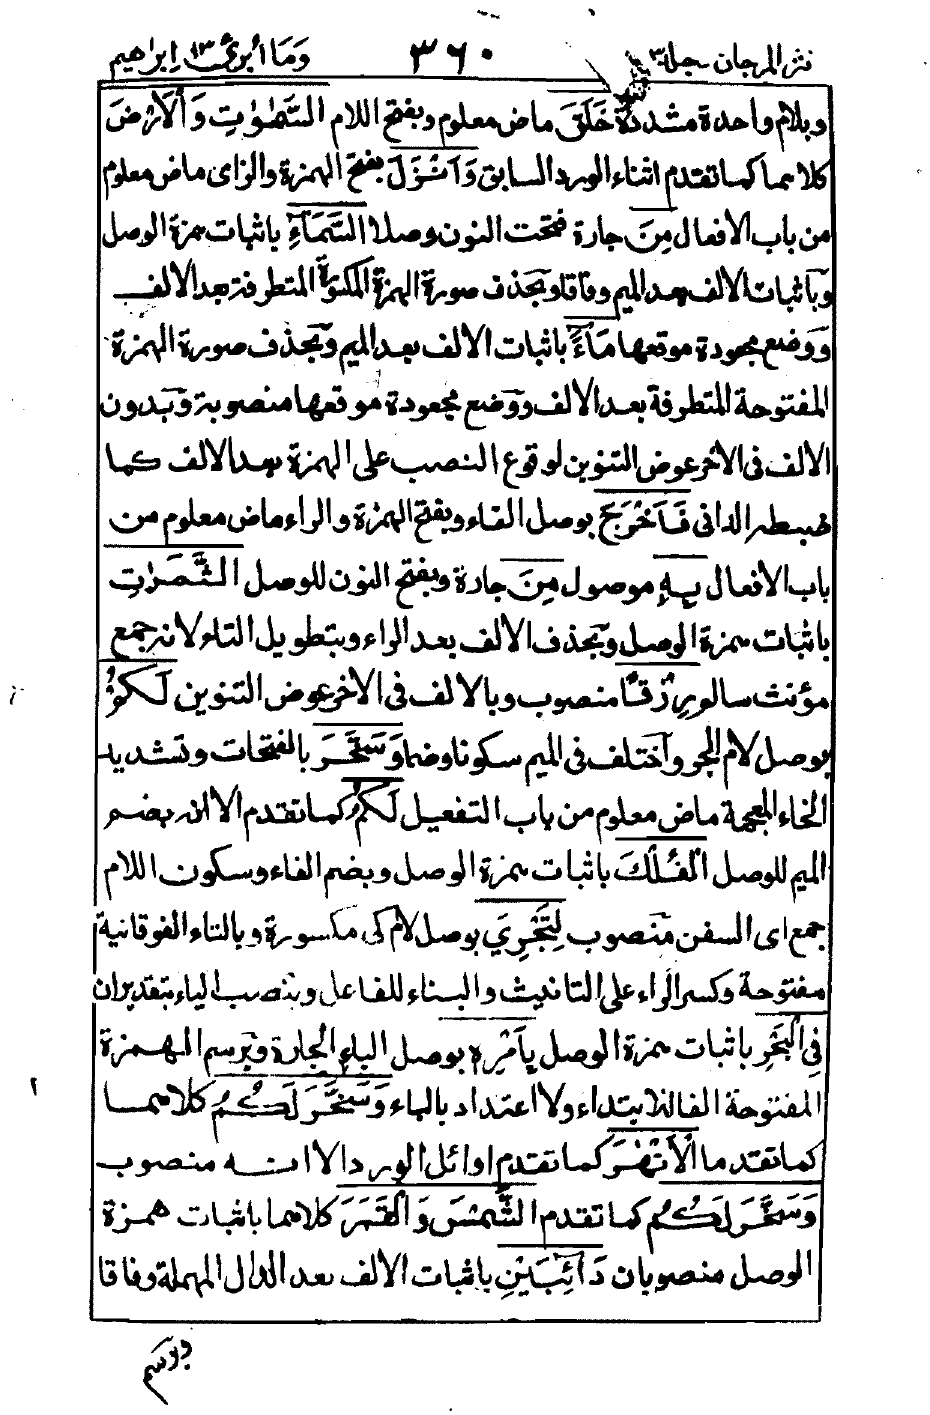 نثر المرجان جلد ٣ ٣٦٠ وَمَا أُبَرِّئُ ١٣ اِبراهيم
وبلام واحدة مشددة خَلَقَ ماض معلوم وبفتح اللام السَّمٰوٰتِ وَالْاَرْضَ
كلاهما كما تقدم اثناء الورد السابق وَاَنْزَلَ بفتح الهمزة والزاى ماض معلوم
من باب الافعال مِنَ جارة فتحت النون وصلا السَّمَآءِ باثبات همزة الوصل
وباثبات الالف بعد الميم وفاقا وبحذف صورة الهمزة المكسورة المتطرفة بعد الالف
ووضع مجعودة موقعها مَآءً باثبات الالف بعد الميم وبحذف صورة الهمزة
المفتوحة المتطرفة بعد الالف ووضع مجعودة موقعها منصوبة وبدون
الالف فى الاخر عوض التنوين لوقوع النصب على الهمزة بعد الالف كما
ضبطه الدانى فَاَخْرَجَ بوصل الفاء وبفتح الهمزة والراء ماض معلوم من
باب الافعال بِهٖ موصول مِنَ جارة وبفتح النون للوصل الثَّمَرٰتِ
باثبات همزة الوصل وبحذف الالف بعد الراء وبتطويل التاء لانه جمع
مؤنث سالم رِزْقًا منصوب وبالالف فى الاخر عوض التنوين لَكُمْ
بوصل لام الجر واختلف فى الميم سكونا وضما وَسَخَّرَ بالفتحات وتشديد
الخاء المعجمة ماض معلوم من باب التفعيل لَكُمُ كما تقدم الا انه بضم
الميم للوصل الْفُلْكَ باثبات همزة الوصل وبضم الفاء وسكون اللام
جمع اى السفن منصوب لِتَجْرِيَ بوصل لام كى مكسورة وبالتاء الفوقانية
مفتوحة وكسر الراء على التانيث والبناء للفاعل وبنصب الياء بتقدير ان
فِي الْبَحْرِ باثبات همزة الوصل بِاَمْرِهٖ بوصل الباء الجارة وبرسم الهمزة
المفتوحة الفا للابتداء ولا اعتداد بالباء وَسَخَّرَ لَكُمُ كلاهما
كما تقدما الْاَنْهٰرَ كما تقدم اوائل الورد الا انه منصوب
وَسَخَّرَ لَكُمُ كما تقدم الشَّمْسَ وَالْقَمَرَ كلاهما باثبات همزة
الوصل منصوبان دَآئِبَيْنِ باثبات الالف بعد الدال المهملة وفاقا
وبرسم